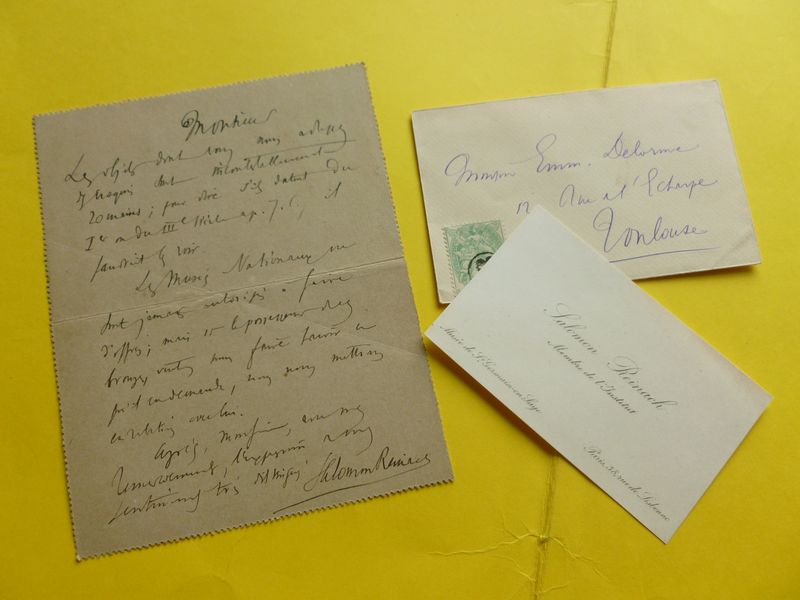 Monsieur
Les objets dont vous nous adressez
sont incontestablement
romains; pour dire s'ils datent du
Ier ou du IIIe siècle ap. J. C., il
faudrait les voir.
Les Musées Nationaux ne
sont jamais autorisés à faire
d'offres; mais si le possesseur des
bronzes veut nous faire savoir ce
qu'il en demande, nous nous mettrons
en relation avec lui.
Agréez, Monsieur, avec mes
remerciements, l'expression de mes
sentiments très distingués
Salomon Reinach
Monsieur Emm. Delorme
12 Rue de l'Echarpe
Toulouse
Salomon Reinach
Membre de l'Institut
Musée de St. Germain-en-Laye
Paris, 38, rue de Lisbonne